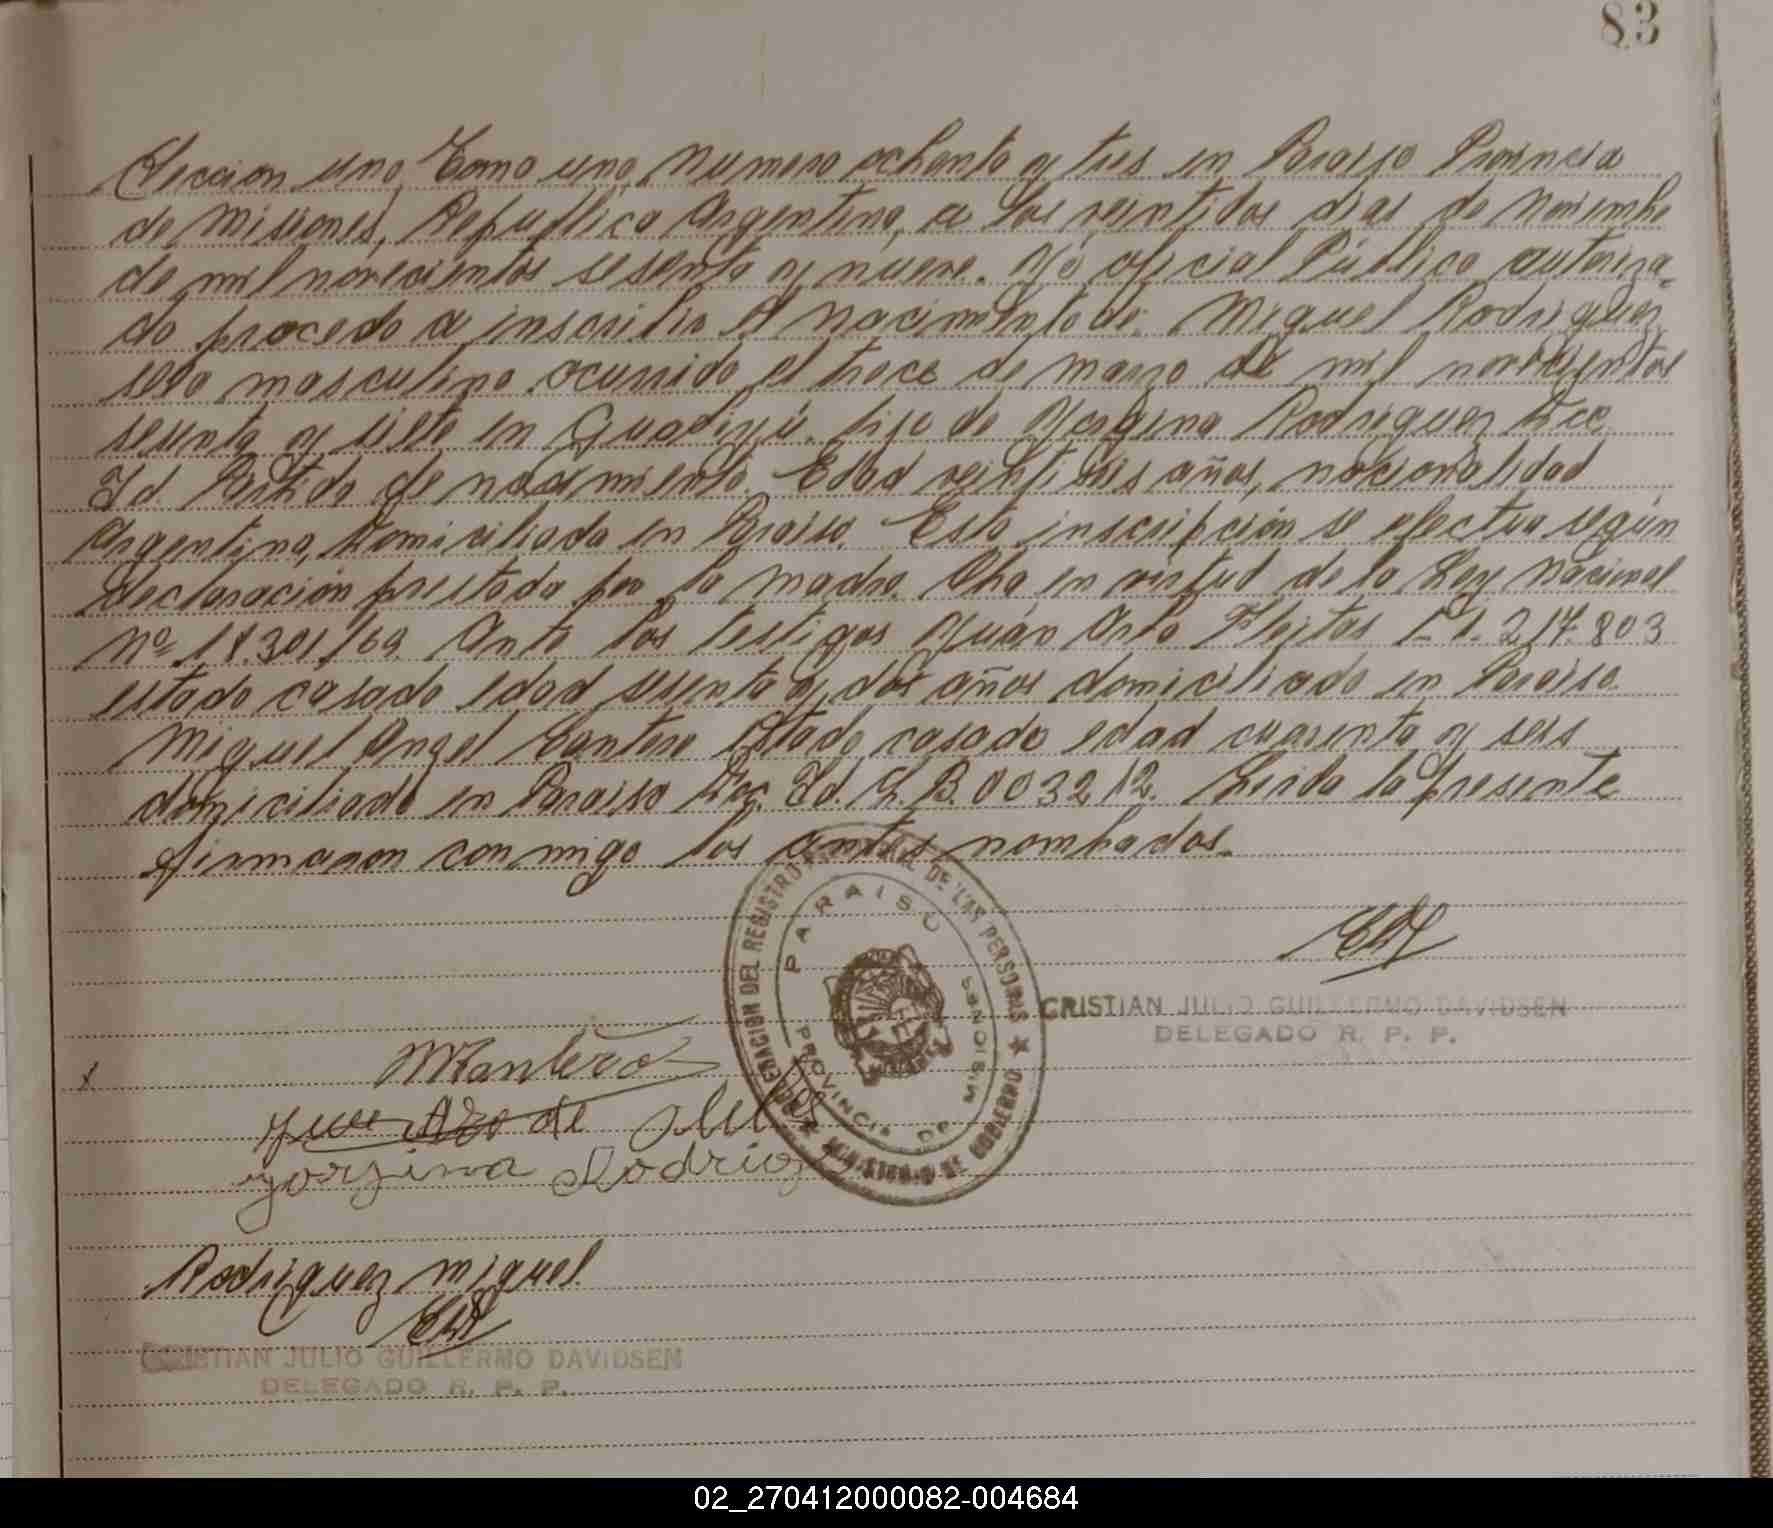 83
Sección uno, Tomo uno, Numero ochenta y tres en Paraiso Provincia
de Misiones, Republica Argentina, a los veintidos dias de Noviembre
de mil novecientos sesenta y nueve. Yó oficial Público autoriza-
do procedo a inscribir el nacimiento de: Miguel Rodriguez
sexo masculino ocurrido el trece de marzo de mil novecientos
sesenta y siete en hijo de Yorgina Rodriguez Doc.
Id. Partida de nacimiento. Edad veintiseis años, nacionalidad
Argentina, domiciliada en Paraiso. Esta inscripción se efectua según
declaración prestada por la madre. en virtud de la Ley Nacional
Nº 18.301/69. Ante los testigos Juán Fleitas 217.803
estado casado edad sesenta y dos años domiciliado en Paraiso.
Miguel Angel Cantero Estado casado edad cuarenta y seis
domiciliado en Paraiso Doc. Id. L.B. 003212. Leida la presente
firmaron conmigo los antes nombrados.
COORDENACION DEL REGISTRO PROVINCIAL DE LAS PERSONAS ★ MINISTERIO DE GOBIERNO ★
PARAISO
PROVINCIA DE MISIONES
CRISTIAN JULIO GUILLERMO DAVIDSEN
DELEGADO R. P. P.
MCantero
yorgina Rodrig
Rodriguez miguel.
CRISTIAN JULIO GUILLERMO DAVIDSEN
DELEGADO R. P. P.
02_270412000082-004684